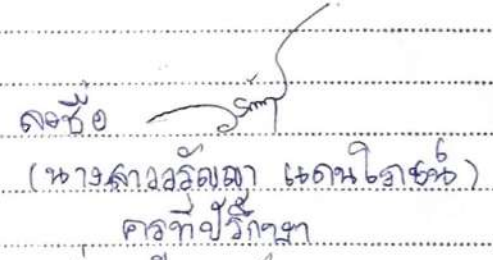 ลงชื่อ
(นางสาวอรัญญา แดนโรจน์)
ครูที่ปรึกษา